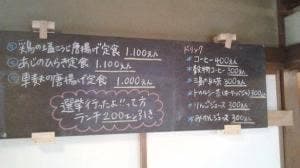 鶏の塩こうじ唐揚げ定食 1.100えん
あじのひらき定食 1.100えん
車麩の唐揚げ定食 1.000えん
選挙行ったよ!!って方
ランチ200えん引き
ドリンク
コーヒー 400えん
穀物コーヒー 300えん
三年番茶 300えん
りんごジュース 300えん
みかんジュース 300えん